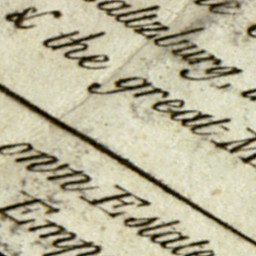 altzburg,
& the great
own Estate
Emp